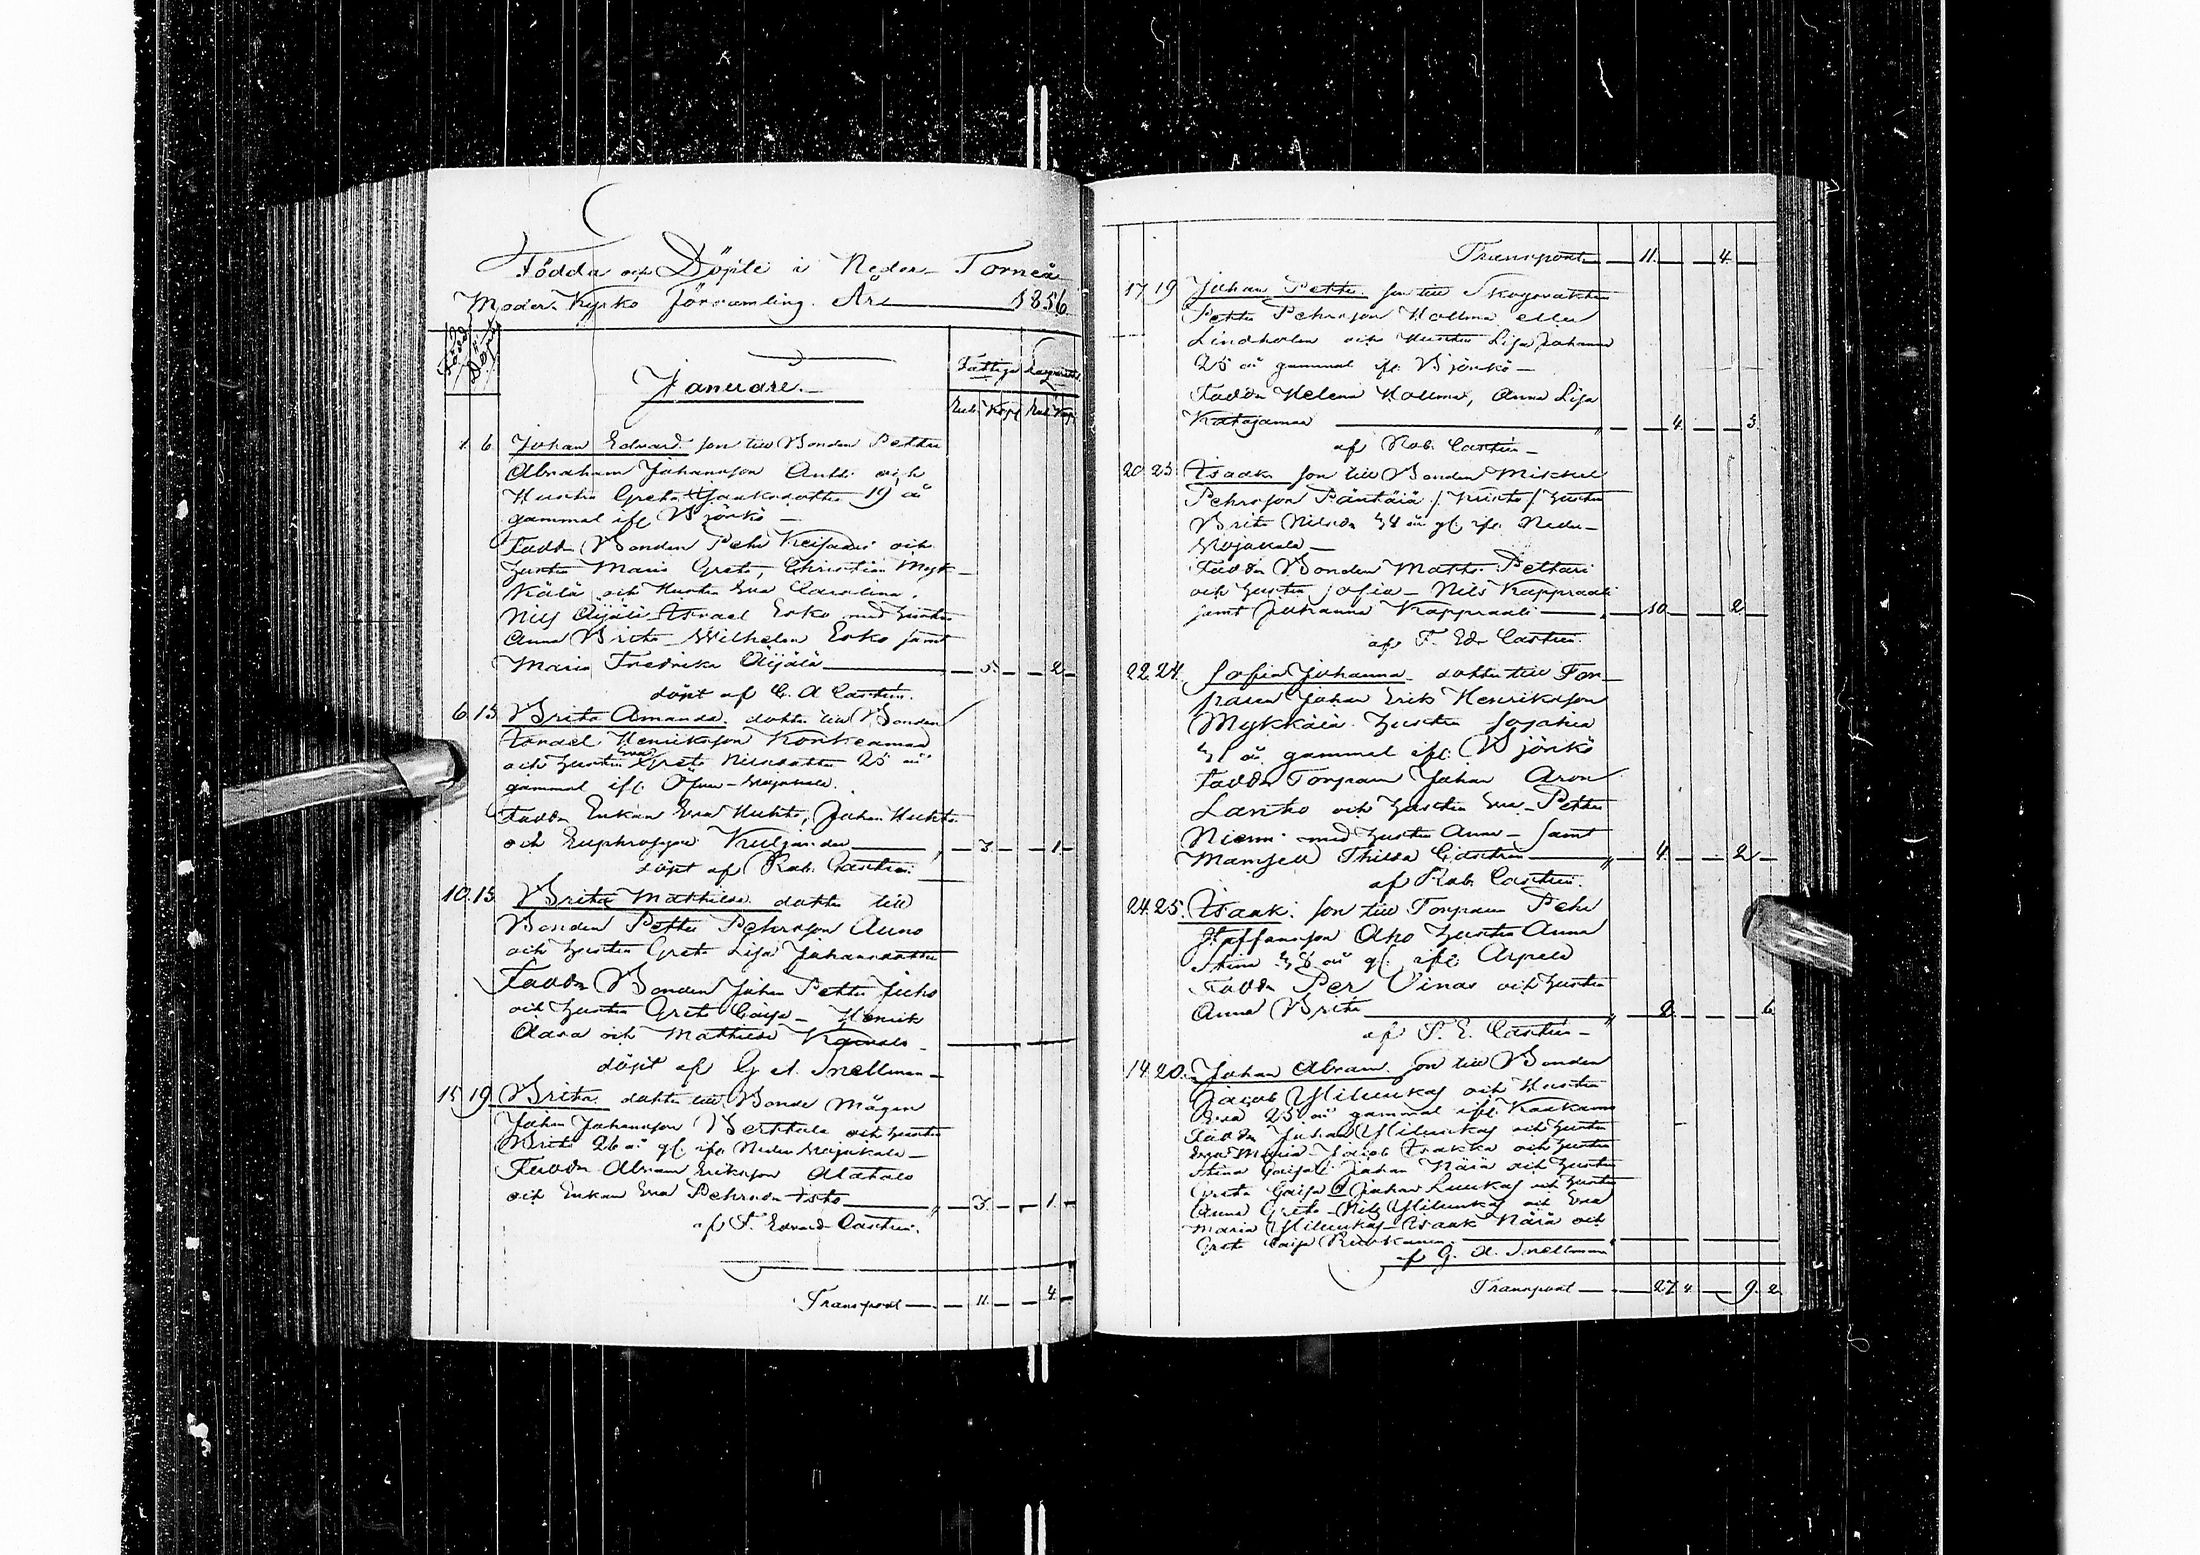 Födda och Döpte i Neder-Torneå
Moder-Kyrko församling. År 1856
Född Döpt
Januari.
Fattiga
Rub. Kop. Rub. Kop.
1. 6. Johan Edvard. son till Bonden Petter
Abraham Johansson Antti och
Hustru Greta Jsaaksdotter 19 år
gammal ifr. Björkö
Faddr. Bonden Pehr och
hustru Maria Greta, Christian Myk-
kälä och Hustru Eva Carolina.
Nils Äijälä Israel Erko med hustru
Anna Brita Wilhelm Erko samt
Maria Fredrika Äijälä 5. 2
döpt af C. A. Castrén.
6. 13. Brita Amanda. dotter till Bonden
Israel Henriksson Konkamaa
och hustru Eva Greta Nilsdotter 25 år
gammal ifr. Öfver-Wojakala.
Faddr. Enkan Eva Huhta, Johan Huhta
och Euphrosyne 3. 1
döpt af Rob. Castrén.
10. 13. Brita Mathilda. dotter till
Bonden Petter Pehrsson Auno
och hustru Greta Lisa Johansdotter
Faddr. Bonden Johan Petter Juho
och hustru Greta Caisa - Henrik
och Mathilda
döpt af G. A. Snellman
15 19. Brita. dotter till Bonde Mågen
Johan Johansson och hustru
Brita 26 år gl. ifr. Neder Wojakala
Faddr. Abram Eriksson Alatalo
och Enkan Eva Pehrsdr. 3. 1
af F. Edvard Castrén.
Transport 11. 4.
Transport 11. 4.
17 19 Johan Petter. son till Skogvaktaren
Petter Pehrsson Hollma eller
Lindholm och Hustru Lisa Johanna
25 år gammal ifr. Björkö
Faddr. Helena Hollma, Anna Lisa
Katajamaa 4. 3.
af Rob. Castrén
20. 23. Isaak son till Bonden Mickel
Pehrsson Päntäiä / / hustru
Brita Nilsdr. 34 år gl. ifr. Neder-
Wojakala
Faddr. Bonden Matts Pettari
och hustru Sofia - Nils Kappraali
samt Johanna Kappraali 10. 2.
af F. Ed. Castrén.
22. 24. Sofia Johanna. dotter till Tor-
paren Johan Erik Henriksson
Mykkälä. hustru
31 år gammal ifr. Björkö
Faddr. Torparen Johan Aron
Lantto och hustru Eva - Petter
Niemi med hustru Anna - samt
Mamsell Thilda Castrén 4. 2
af Rob. Castrén.
24. 25. Isaak. son till Torparen Pehr
Staffansson Aho hustru Anna
Stina 38 år gl. ifr. Arpela
Faddr. Per Vinas och hustru
Anna Brita 2. 6.
af F. E. Castrén
14. 20. Johan Abram. son till Bonden
Jacob Yliluukas och Hustru
Eva 25 år gammal ifr. Kaakamo
Faddr. Johan Yliluukas och hustru
Eva Maria - Jacob Isakka och hustru
Stina Johan Näiä och hustru
Greta Caisa Johan Luukas och hustru
Anna Greta - Nils Yliluukas och Eva
Maria Yliluukas - Isaak Näiä och
Greta Caisa
af G. A. Snellman
Transport 27 4. 9. 2.